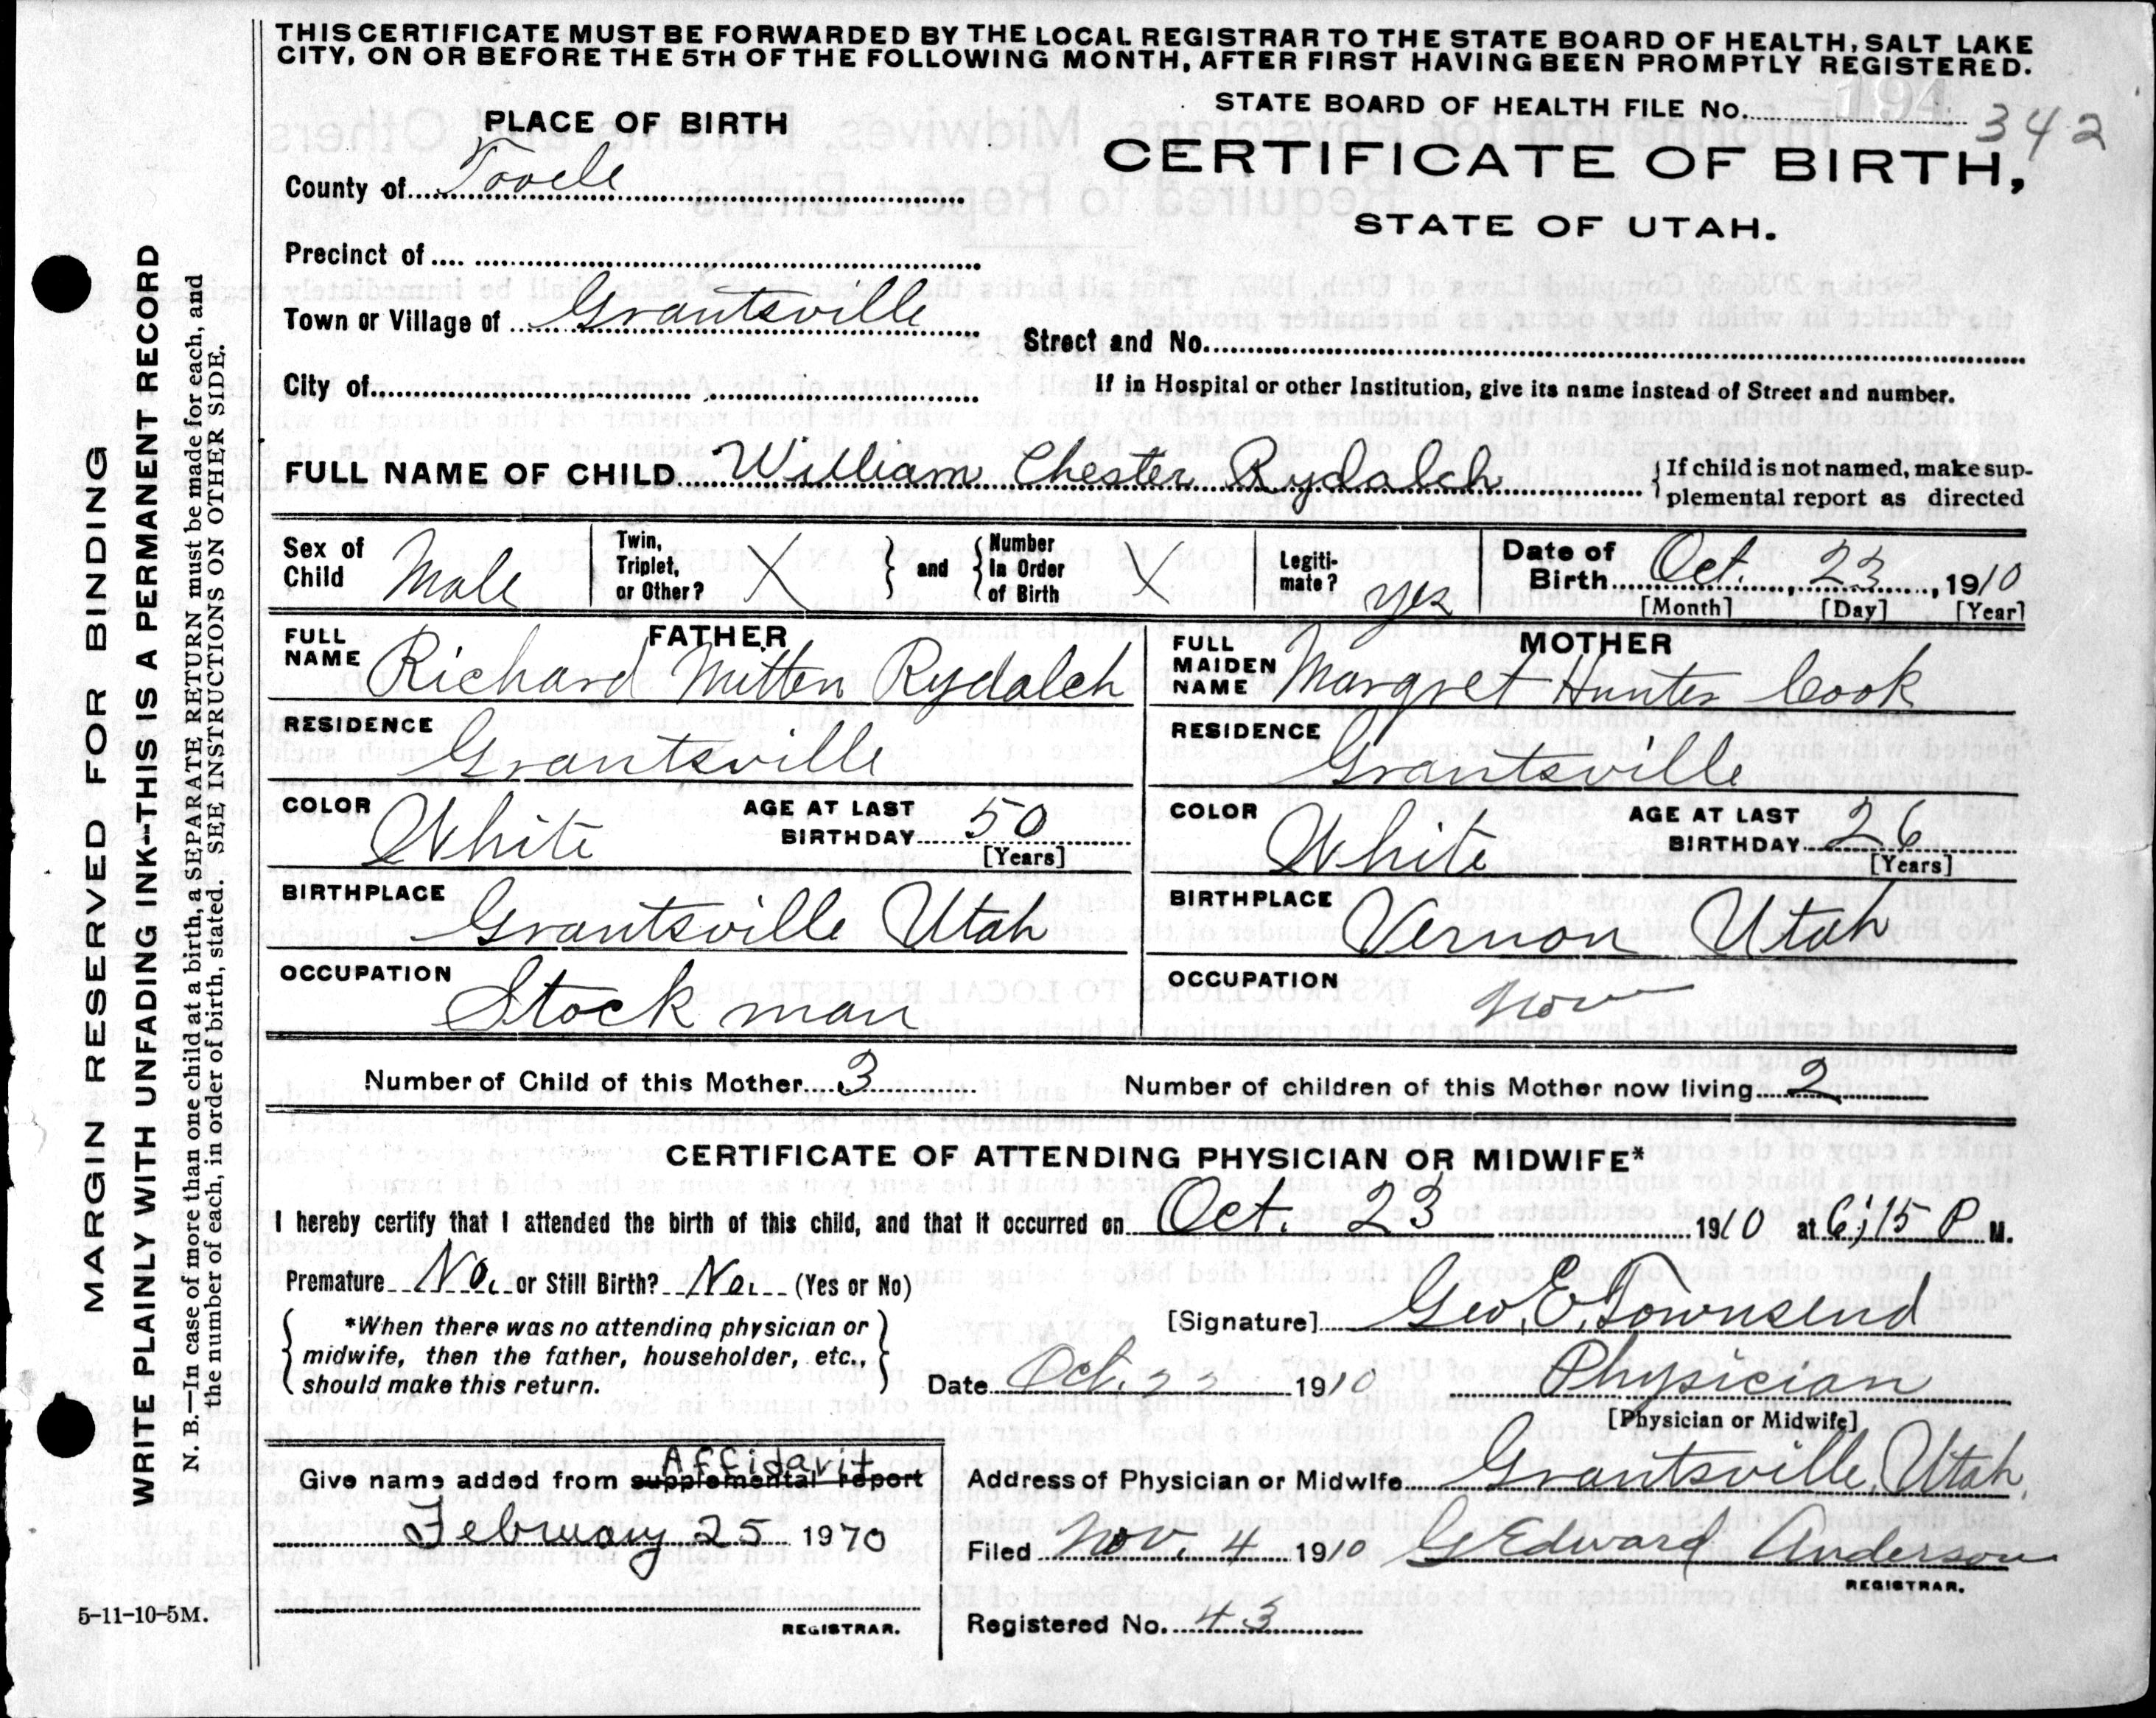 THIS CERTIFICATE MUST BE FORWARDED BY THE LOCAL REGISTRAR TO THE STATE BOARD OF HEALTH, SALT LAKE
CITY, ON OR BEFORE THE 5TH OF THE FOLLOWING MONTH, AFTER FIRST HAVING BEEN PROMPTLY REGISTERED.
STATE BOARD OF HEALTH FILE No. 194 342
PLACE OF BIRTH
CERTIFICATE OF BIRTH,
STATE OF UTAH.
County of Tooele
Precinct of
Town or Village of Grantsville
Street and No.
City of
If in Hospital or other Institution, give its name instead of Street and number.
FULL NAME OF CHILD William Chester Rydalch
If child is not named, make sup-
plemental report as directed
Sex of Child Male
Twin, Triplet, or Other? X
and
Number In Order of Birth X
Legiti-mate? yes
Date of Birth Oct. 23, 1910
[Month] [Day] [Year]
FATHER
FULL NAME Richard Mitten Rydalch
RESIDENCE Grantsville
COLOR White
AGE AT LAST BIRTHDAY 50
[Years]
BIRTHPLACE Grantsville Utah
OCCUPATION Stock man
MOTHER
FULL MAIDEN NAME Margret Hunter Cook
RESIDENCE Grantsville
COLOR White
AGE AT LAST BIRTHDAY 26
[Years]
BIRTHPLACE Vernon Utah
OCCUPATION
Number of Child of this Mother 3
Number of children of this Mother now living 2
CERTIFICATE OF ATTENDING PHYSICIAN OR MIDWIFE*
I hereby certify that I attended the birth of this child, and that it occurred on Oct. 23 1910 at 6;15 P M.
Premature No. or Still Birth? No. (Yes or No)
*When there was no attending physician or
midwife, then the father, householder, etc.,
should make this return.
[Signature] Geo. E. Townsend
Date Oct. 23 1910
Physician
[Physician or Midwife]
Affidavit
Give name added from supplemental report
February 25 1970
REGISTRAR.
Address of Physician or Midwife Grantsville, Utah.
Filed Nov. 4 1910 G Edward Anderson
REGISTRAR.
Registered No. 43
5-11-10-5M.
MARGIN RESERVED FOR BINDING
WRITE PLAINLY WITH UNFADING INK--THIS IS A PERMANENT RECORD
N. B.—In case of more than one child at a birth, a SEPARATE RETURN must be made for each, and
the number of each, in order of birth, stated. SEE INSTRUCTIONS ON OTHER SIDE.